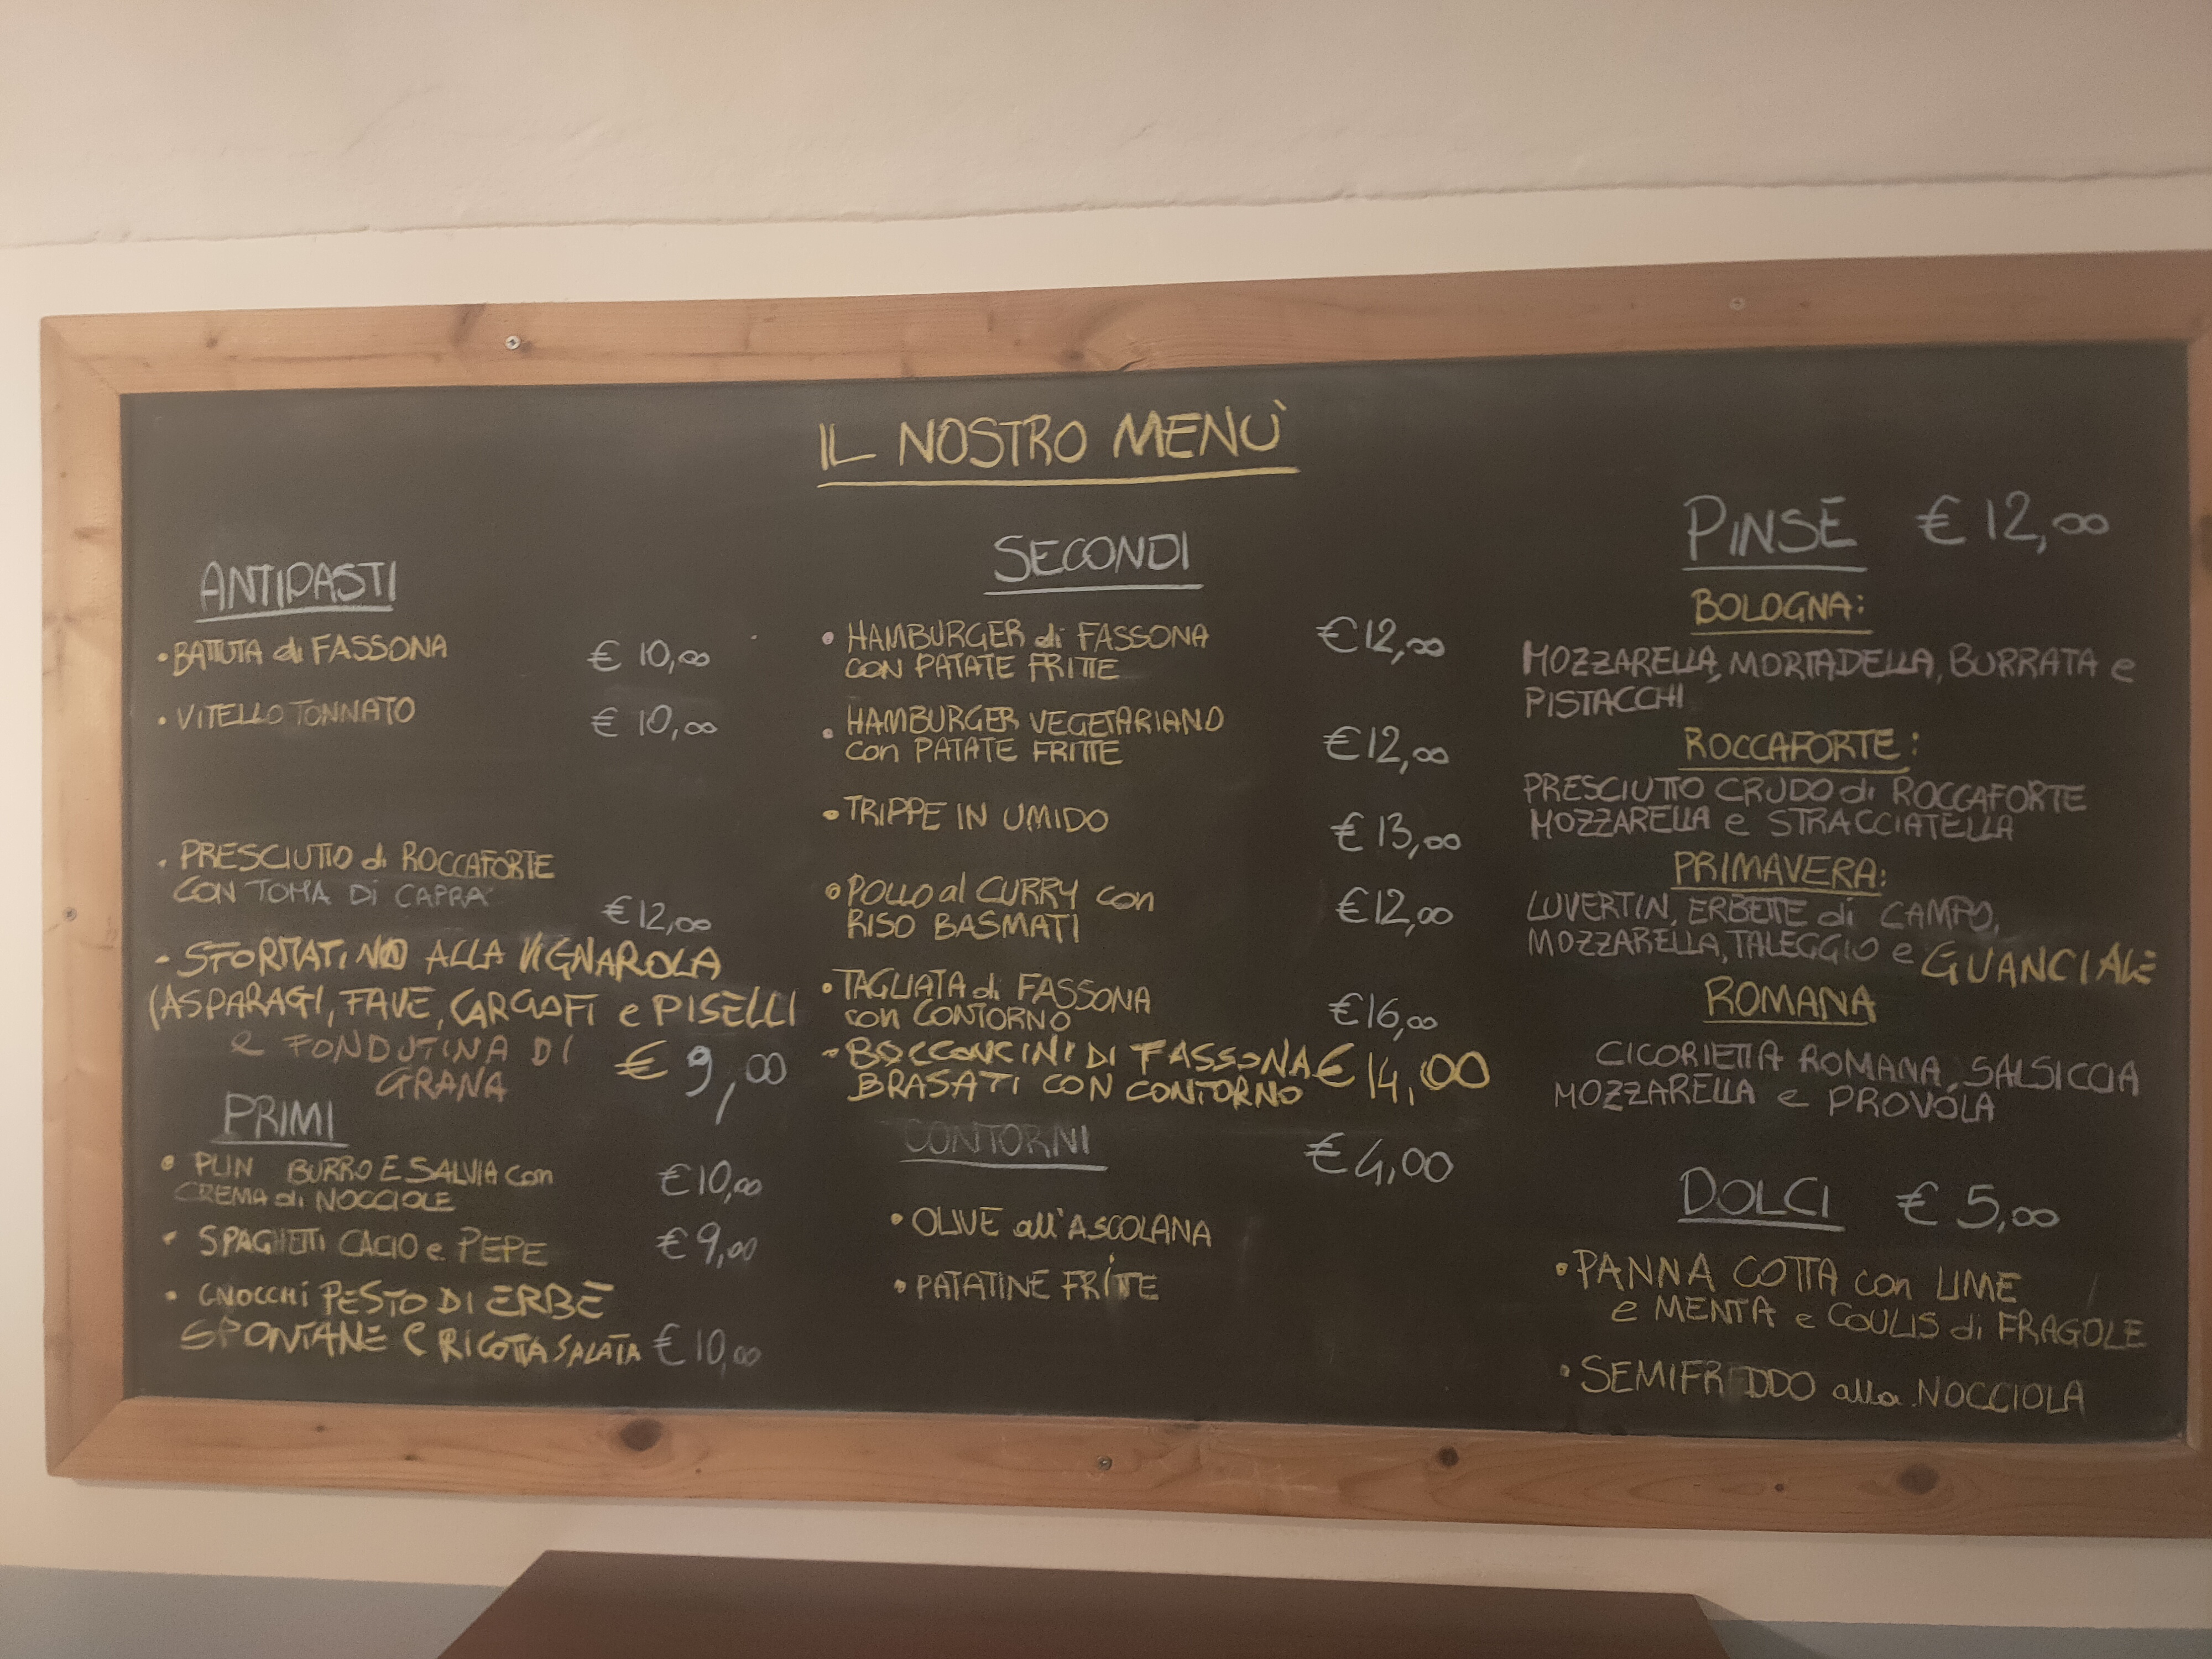 IL NOSTRO MENÙ
ANTIPASTI
• BATTUTA di FASSONA € 10,00
• VITELLO TONNATO € 10,00
• PRESCIUTTO di ROCCAFORTE
CON TOMA DI CAPRA € 12,00
- SFORMATINO ALLA VIGNAROLA
(ASPARAGI, FAVE, CARCIOFI e PISELLI
e FONDUTINA DI
GRANA € 9,00
PRIMI
• PLIN BURRO E SALVIA con
CREMA di NOCCIOLE € 10,00
• SPAGHETTI CACIO e PEPE € 9,00
• GNOCCHI PESTO DI ERBE
SPONTANE E RICOTTA SALATA € 10,00
SECONDI
• HAMBURGER di FASSONA
CON PATATE FRITTE € 12,00
• HAMBURGER VEGETARIANO
con PATATE FRITTE € 12,00
• TRIPPE IN UMIDO € 13,00
• POLLO al CURRY con
RISO BASMATI € 12,00
• TAGLIATA di FASSONA
con CONTORNO € 16,00
- BOCCONCINI DI FASSONA € 14,00
BRASATI CON CONTORNO
CONTORNI € 4,00
• OLIVE all'ASCOLANA
• PATATINE FRITTE
PINSE € 12,00
BOLOGNA:
MOZZARELLA, MORTADELLA, BURRATA e
PISTACCHI
ROCCAFORTE:
PRESCIUTTO CRUDO di ROCCAFORTE
MOZZARELLA e STRACCIATELLA
PRIMAVERA:
LUVERTIN, ERBETTE di CAMPO,
MOZZARELLA, TALEGGIO e GUANCIALE
ROMANA
CICORIETTA ROMANA, SALSICCIA
MOZZARELLA e PROVOLA
DOLCI € 5,00
• PANNA COTTA con LIME
e MENTA e COULIS di FRAGOLE
• SEMIFREDDO alla NOCCIOLA